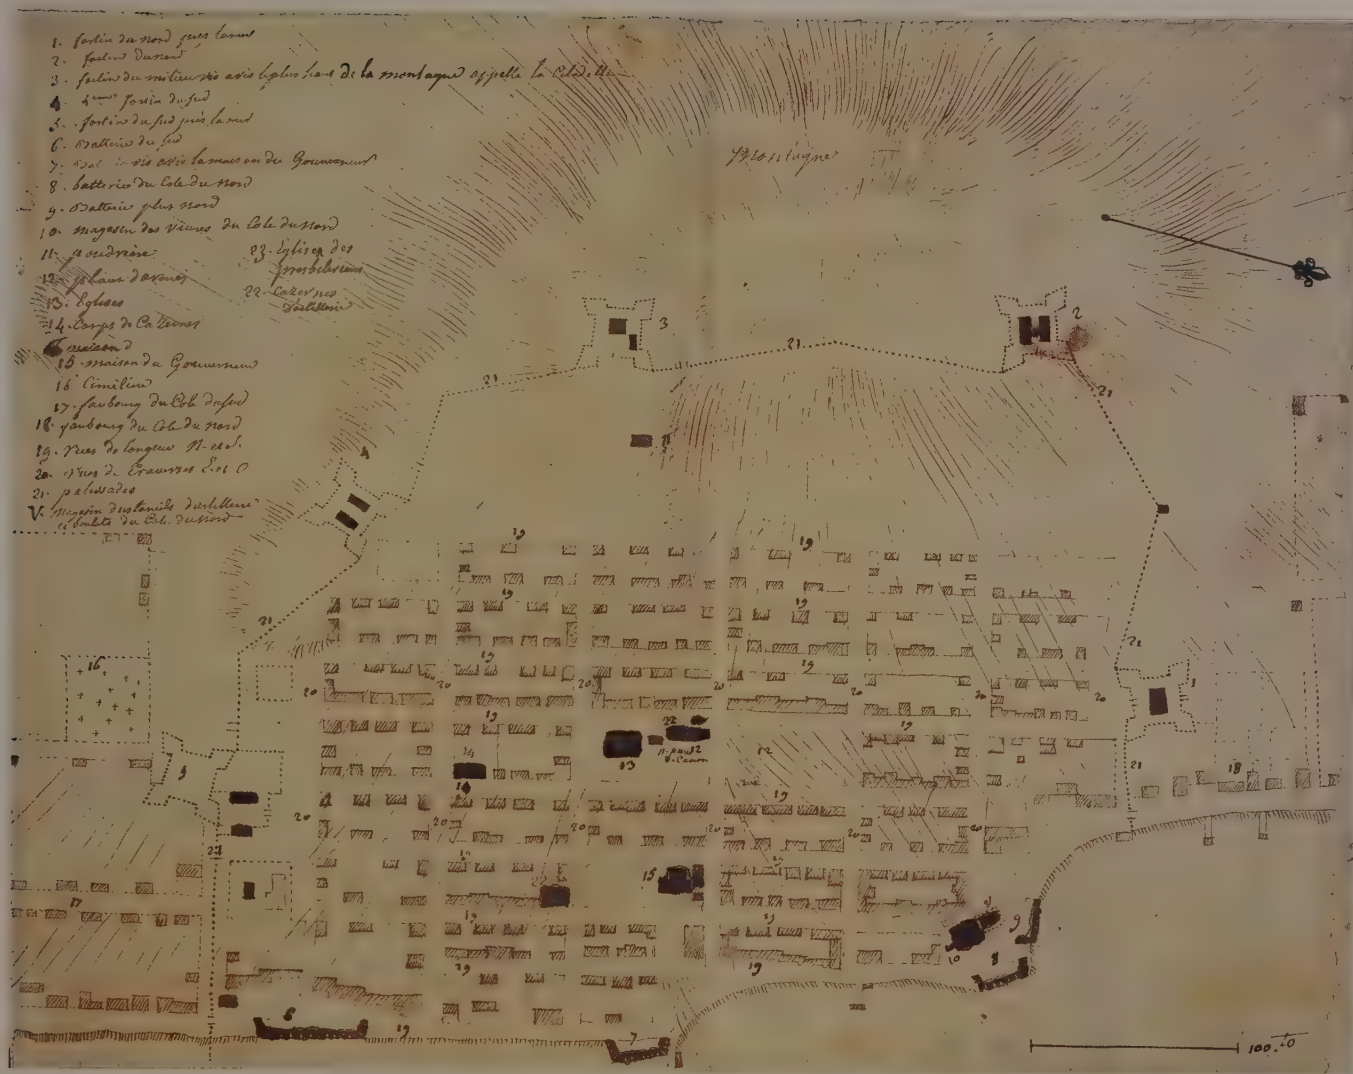 1. fortin du nord près la mer
2. fortin du nord
3. fortin du milieu vis avis le plus haut de la montagne appelle la Citadelle
4. fortin du sud
5. fortin du sud près la mer
6. Batterie du sud
7. Bat vis avis la maison du Gouverneur
8. batterie du Cote du nord
9. Batterie plus nord
10. magasin des vivres du Cote du nord
11. poudrière
12. place d'armes
13. Eglises
14. Corps de Cazernes
15. maison du Gouverneur
16 Cimitiere
17. faubourg du Cote du sud
18. faubourg du Cote du nord
19. rues de longeur N. et S.
20. rues de Traverses E. et O
21. palissades
V. Magasin d'ustancils d'artillerie
et boulets du Cote du nord
23. Eglise des
presbiteriens
22. Cazernes
d'artillerie
Montagne
3
2
21
21
21
4
11
19
19
21
19
19
21
16
19
19
20
20
20
20
20
20
20
1
5
19
19
14
13
22
12
12
21
18
20
20
20
20
20
20
19
15
17
19
19
9
10
8
19
19
6
19
7
100. to